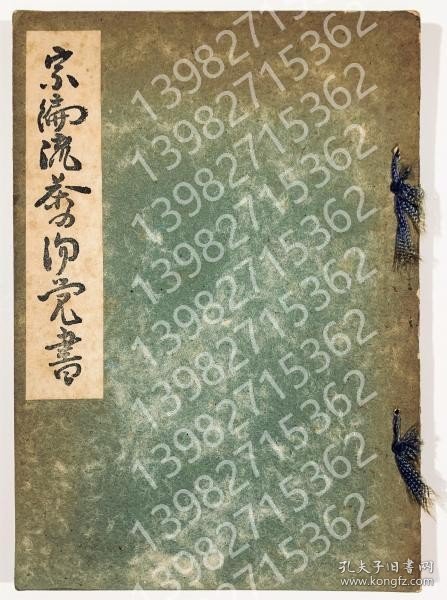 宗徧流茶の湯覚書
13982715362
13982715362
13982715362
13982715362
13982715362
13982715362
13982715362
13982715362
13982715362
13982715362
13982715362
13982715362
孔夫子旧书网
https://www.kongfz.com